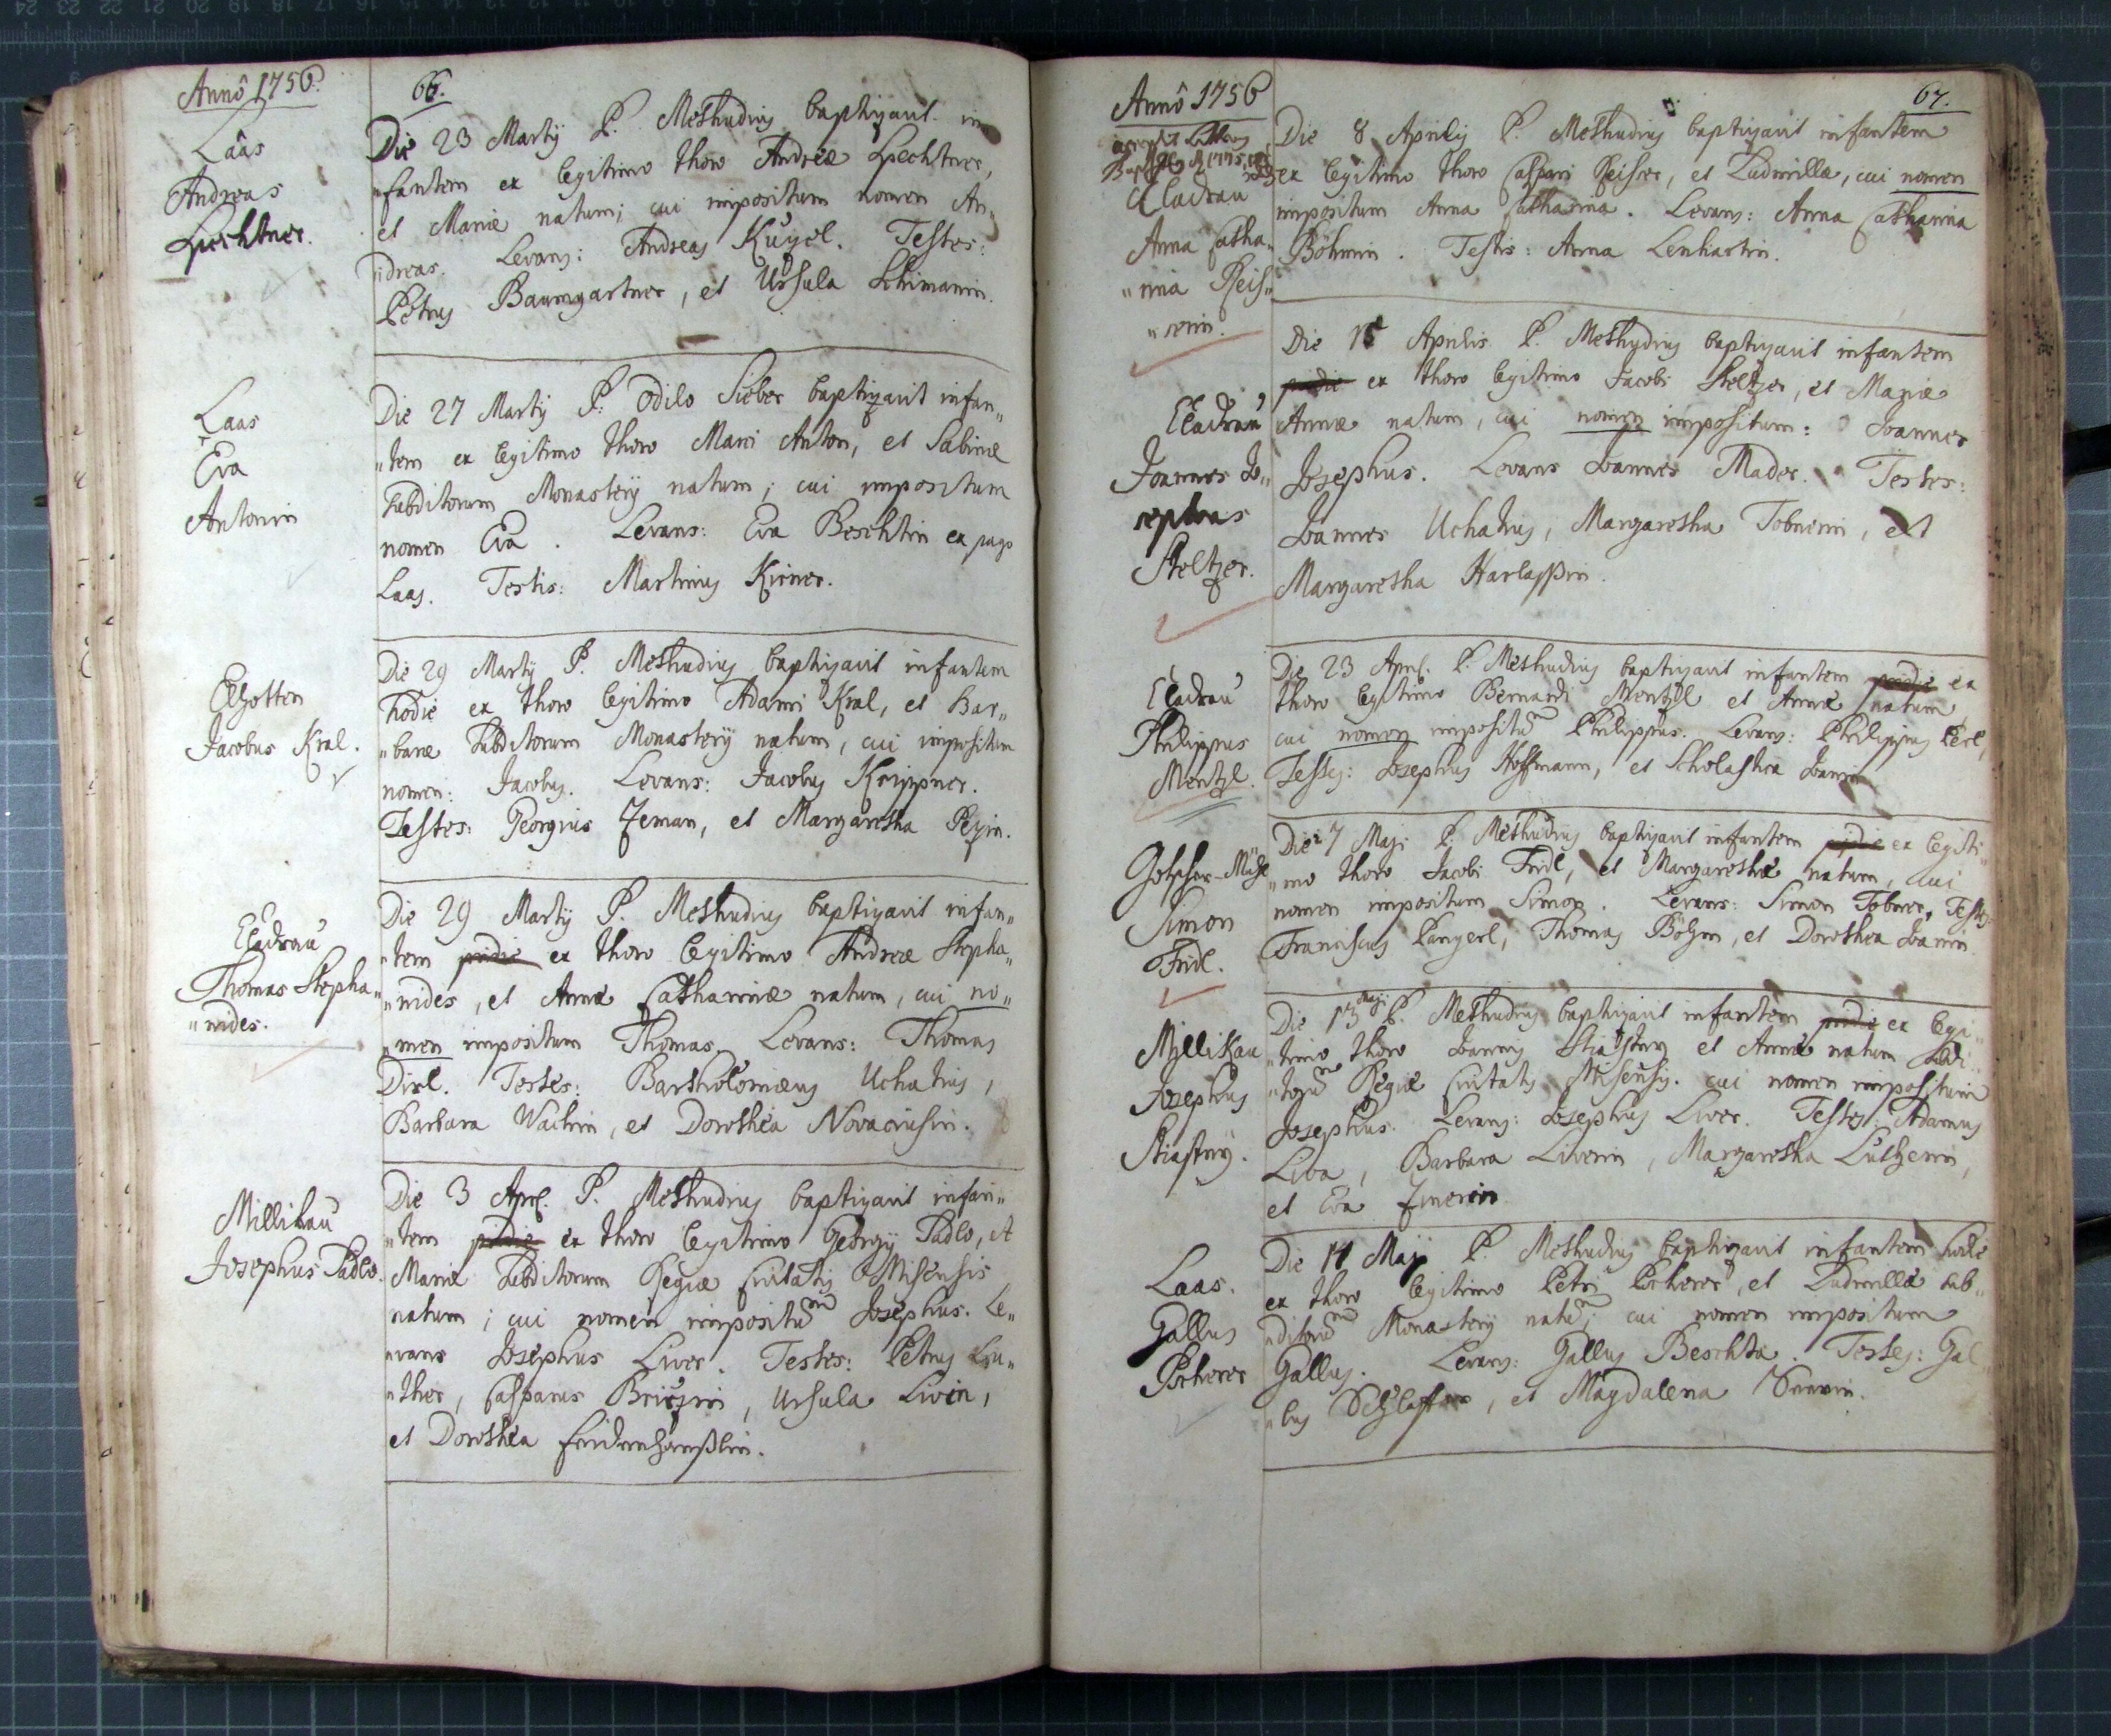 Annô 1756.
66.
Lâas
Andreas
Lpechtner.
Die 23 Martÿ P. Methudius baptizavit in
"fantem ex legitimo thoro Andreæ Lpechtner,
et Mariæ natum; cui impositum nomen An"
"dreas. Levans: Andreas Kugel. Testes:
Petrus Baumgartner, et Ursula Schimanin.
Laas
Eva
Antonin
Die 27 Martÿ P. Odilo Sieber baptizavit infan"
"tem ex legitimo thoro Marci Anton, et Sabinæ
subditorum Monasterÿ natum; cui impositum
nomen Eva. Levans: Eva Beschtin ex pago
Laas. Testis: Martinus Kirner.
Elhotten
Jacobus Kral.
Die 29 Martÿ P. Methudius baptizavit infantem
hodie ex thoro legitimo Adami Kral, et Bar"
"baræ subditorum Monasterÿ natum, cui impositum
nomen: Jacobus. Levans: Jacobus Krippner.
Testes: Georgius Zeman, et Margaretha Pezin.
Cladrau
Thomas Stepha"
"nides.
Die 29 Martÿ P. Methudius baptizavit infan"
"tem pridie ex thoro legitimo Andreæ Stepha"
"nides, et Annæ Catharinæ natum, cui no"
"men impositum Thomas. Levans: Thomas
Dirl. Testes: Bartholomæus Uchatius,
Barbara Wachin, et Dorothea Novacinsin.
Millikau
Josephus Sadlo.
Die 3 Apri. P. Methudius baptizavit infan"
"tem pridie ex thoro legitimo Georgÿ Sadlo, et
Mariæ subditorum Regiæ Civitatis Misensis
natum; cui nomen impositum Josephus. Le"
"vans Josephus Liver. Testes: Petrus Lu"
"ther, Casparus Ursula Livin,
et Dorothea
Annô 1756
67.
Cladrau
Anna Catha"
"rina Reis"
"serin.
Die 8 Aprilis P. Methudius baptizavit infantem
ex legitimo thoro Caspari Reisser, et Ludmillæ, cui nomen
impositum Anna Catharina. Levans: Anna Catharina
Böhmin. Testis: Anna Lenhartin.
Cladrau
Joannes Jo"
sephus
Steltzer.
Die 15 Aprilis P. Methudius baptizavit infantem
pridie ex thoro legitimo Jacobi Steltzer, et Mariæ
Annæ natum, cui nomen impositum: Joannes
Josephus. Levans Joannes Mader. Testes:
Joannes Uchatius, Margaretha Tobnerin, et
Margaretha Harlassin.
Cladrau
Philippus
Mentzl.
Die 23 Apri. P. Methudius baptizavit infantem pridie ex
thoro legitimo Bernardi Mentzl et Annæ natum
cui nomen impositum Philippus. Levans: Philippus Perl,
Testes: Josephus Hoffmann, et Scholastica
Simon
Fridl.
Die 7 Maji P. Methudius baptizavit infantem pridie ex legiti"
"mo thoro Jacobi Fridl, et Margarethæ natum, cui
nomen impositum Simon. Levans: Simon Tobner, Testes:
Franciscus Pangerl, Thomas Böhm, et Dorothea
Millikau
Josephus
Stiastny.
Die 13 Maji P. Methudius baptizavit infantem pridie ex legi"
"timo thoro Joannis Stiastny et Annæ natum subdi"
"torum Regiæ Civitatis Misensis. cui nomen impositum
Josephus. Levans: Josephus Liver. Testes: Adamus
Liva, Barbara Liverin, Margaretha Lutherin,
et Eva
Laas.
Gallus
Pscherer
Die 14 Maji P. Methudius baptizavit infantem hodie
ex thoro legitimo Petri Pscherer, et Ludmillæ sub"
"ditorum Monasterÿ natum, cui nomen impositum
Gallus. Levans: Gallus Beschta. Testes: Gal
"lus et Magdalena